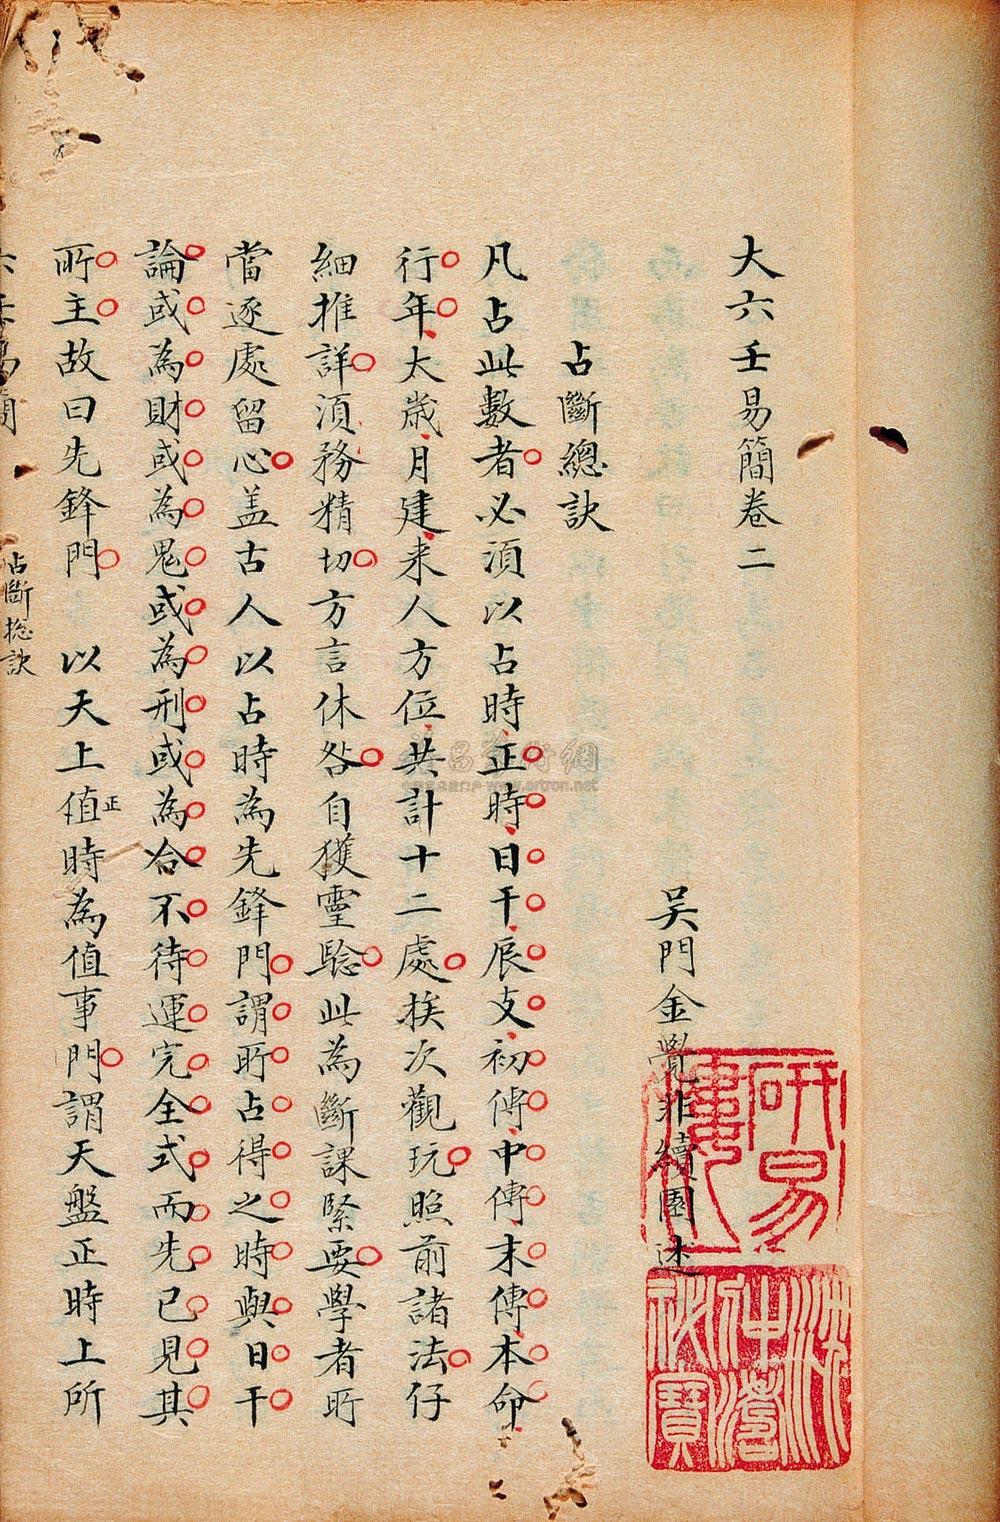 大六壬易簡卷二
吳門金覺非續園述
占斷總訣
凡占此數者必須以占時正時日干辰支初傳中傳末傳本命
行年太歲月建来人方位共計十二處挨次觀玩照前諸法仔
細推詳須務精切方言休咎自獲靈驗此為斷課緊要學者所
當逐處留心盖古人以占時為先鋒門謂所占得之時與日干
論或為財或為鬼或為刑或為合不待運完全式而先已見其
所主故曰先鋒門 以天上值正時為值事門謂天盤正時上所
六壬易簡
占斷總訣
研易樓
沈仲濤
秘寶
www.artron.net